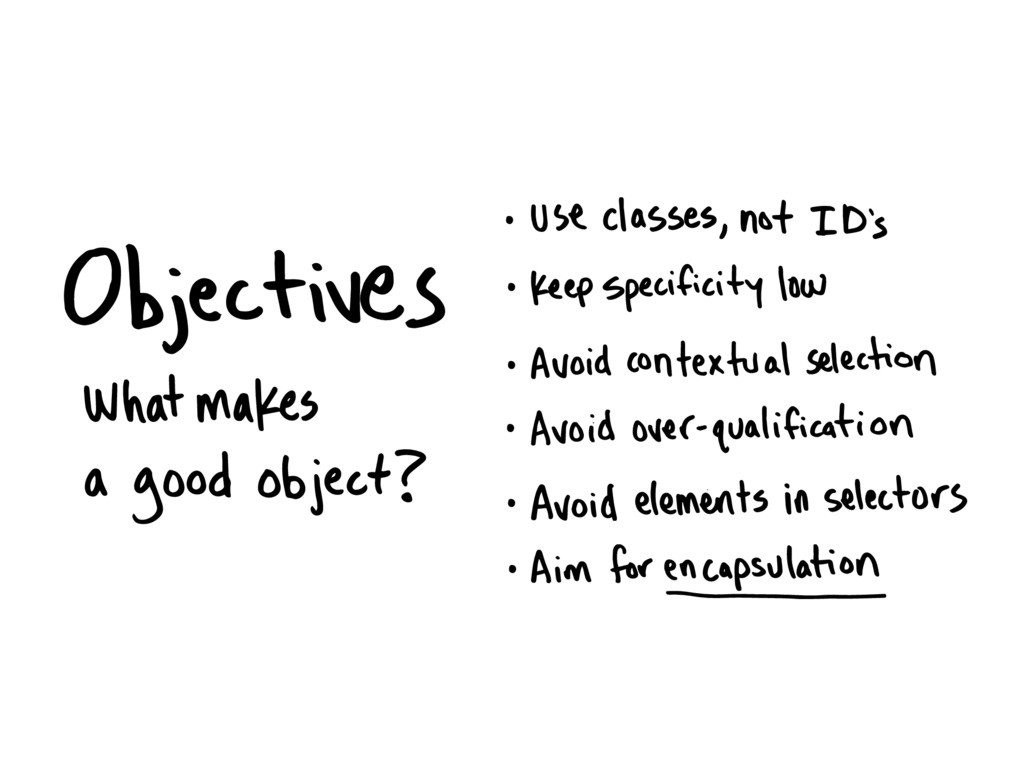 Objectives
What makes
a good object?
• Use classes, not ID's
• Keep specificity low
• Avoid contextual selection
• Avoid over-qualification
• Avoid elements in selectors
• Aim for encapsulation